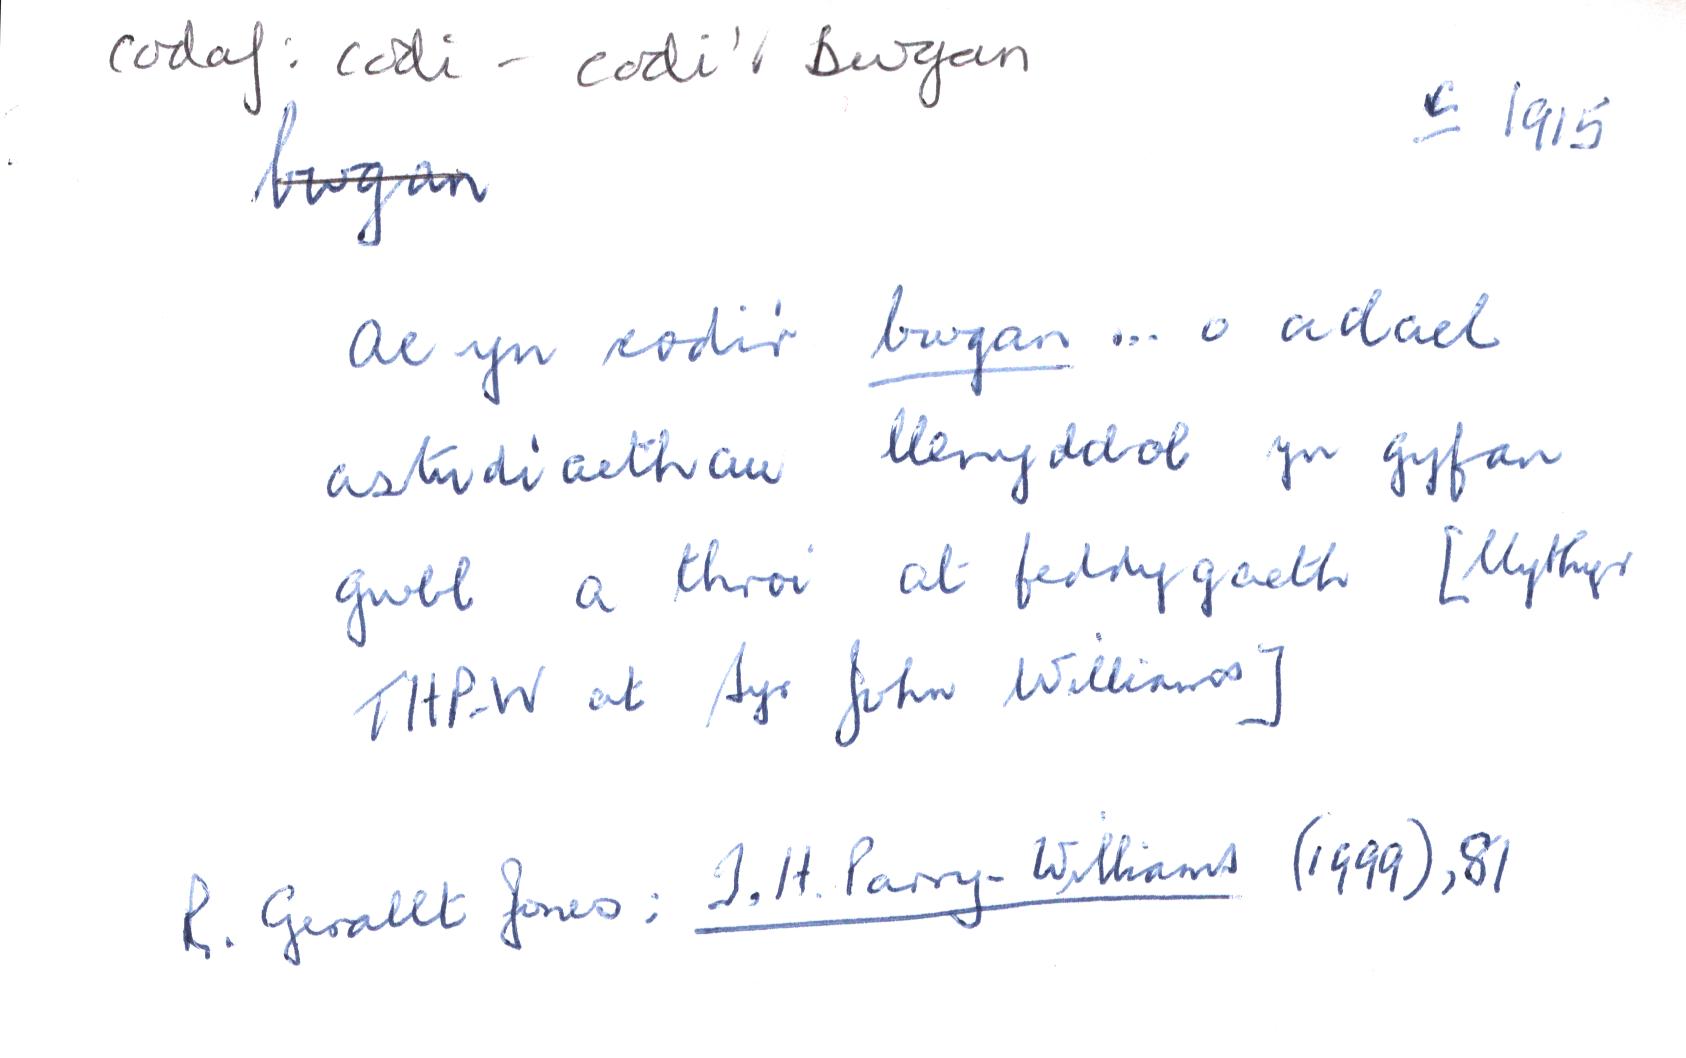 codaf: codi – codi'r Bwgan
c 1915
bwgan
Ac yn codi'r bwgan ... o adael
astudiaethau llenyddol yn gyfan
gwbl a throi at feddygaeth [Llythyr
THP-W at Syr John Williams]
R. Gerallt Jones: T.H. Parry-Williams (1999), 81